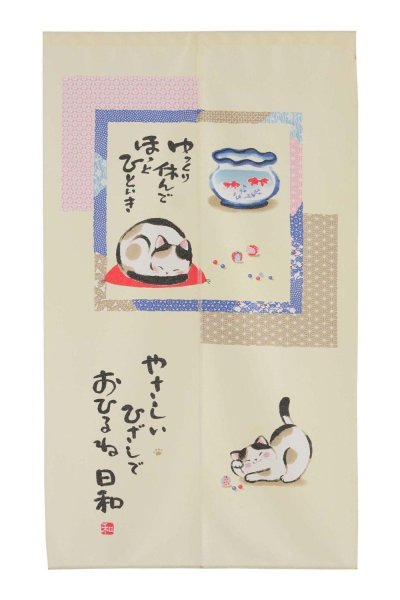 ゆっくり
休んで
ほっと
ひといき
やさしい
ひざしで
おひるね日和
和